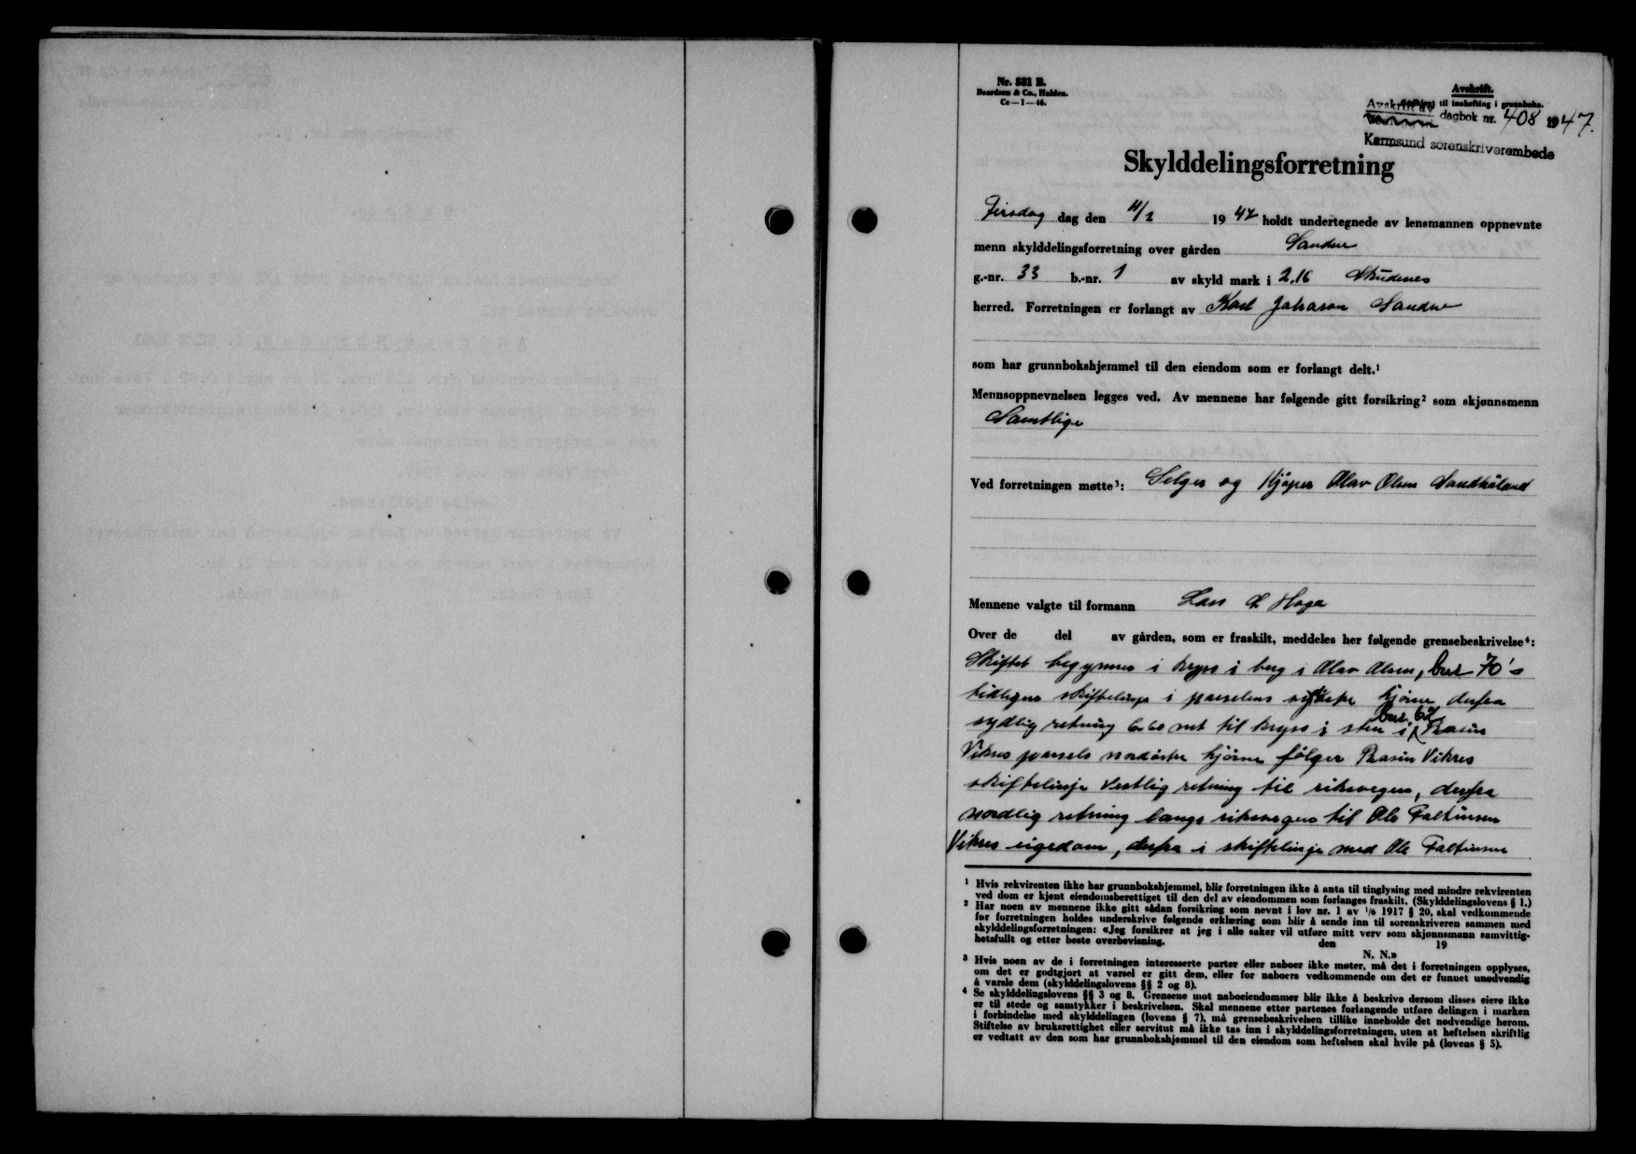 Nr. 881 B.
Beardsen & Co., Halden.
Ce—1—46.
Avskrift.
godkjent til innhefting i grunnboka.
Avskrift av
dagbok nr. 408 1947.
Karmsund sorenskriverembede
Skylddelingsforretning
Tirsdag dag den 4/2 1947 holdt undertegnede av lensmannen oppnevnte
menn skylddelingsforretning over gården Sandve
g.-nr. 33 b.-nr. 1 av skyld mark i 2.16 Skudenes
herred. Forretningen er forlangt av Karl Johason Sandve
som har grunnbokshjemmel til den eiendom som er forlangt delt.¹
Mennsoppnevnelsen legges ved. Av mennene har følgende gitt forsikring² som skjønnsmenn
Samtlige
Ved forretningen møtte³: Selger og Kjøper Olav Olsen Sandhåland
Mennene valgte til formann Lars Haga
Over de del av gården, som er fraskilt, meddeles her følgende grensebeskrivelse⁴:
Skiftet begynner i kryss i berg i Olav Olsen, bnr 70's
tidligere skiftelinje i parselens hjørne derfra
sydlig retning 6.60 mt til kryss i sten i bnr. 62 Rasin
Vikres parsels nordøstre hjørne følger Rasin Vikres
skiftelinje vestlig retning til riksvegen, derfra
nordlig retning langs riksvegen til Ole Faltinsen
Vikres eigedom, derfra i skiftelinje med Ole Faltinsen
¹ Hvis rekvirenten ikke har grunnbokshjemmel, blir forretningen ikke å anta til tinglysing med mindre rekvirenten
ved dom er kjent eiendomsberettiget til den del av eiendommen som forlanges fraskilt. (Skylddelingslovens § 1.)
² Har noen av mennene ikke gitt sådan forsikring som nevnt i lov nr. 1 av 1/6 1917 § 20, skal vedkommende
før forretningen holdes underskrive følgende erklæring som blir å sende inn til sorenskriveren sammen med
skylddelingsforretningen: «Jeg forsikrer at jeg i alle saker vil utføre mitt verv som skjønnsmann samvittig-
hetsfullt og etter beste overbevisning. den 19
N. N.»
³ Hvis noen av de i forretningen interesserte parter eller naboer ikke møter, må det i forretningen opplyses,
om det er godtgjort at varsel er gitt dem, eller for naboers vedkommende om det er funnet unødvendig
å varsle dem (skylddelingslovens §§ 2 og 8).
⁴ Se skylddelingslovens §§ 3 og 8. Grensene mot naboeiendommer blir ikke å beskrive dersom disses eiere ikke
er til stede og samtykker i beskrivelsen. Skal mennene etter partenes forlangende utføre delingen i marken
i forbindelse med skylddelingen (lovens § 7), må grensebeskrivelsen tillike inneholde det nødvendige herom.
Stiftelse av bruksrettighet eller servitut må ikke tas inn i skylddelingsforretningen, uten at heftelsen skriftlig
er vedtatt av den som har grunnbokshjemmel til den eiendom som heftelsen skal hvile på (lovens § 5).